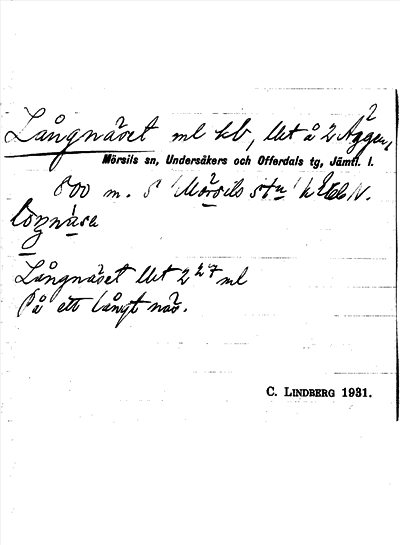 Långnäset ml kb, llet å 2 Äggen,
Mörsils sn, Undersåkers och Offerdals tg, Jämtl. l.
800 m. S Mörsils stn
loŋnäse
Långnäset llet 2 27 ml
På ett långt näs.
C. LINDBERG 1931.